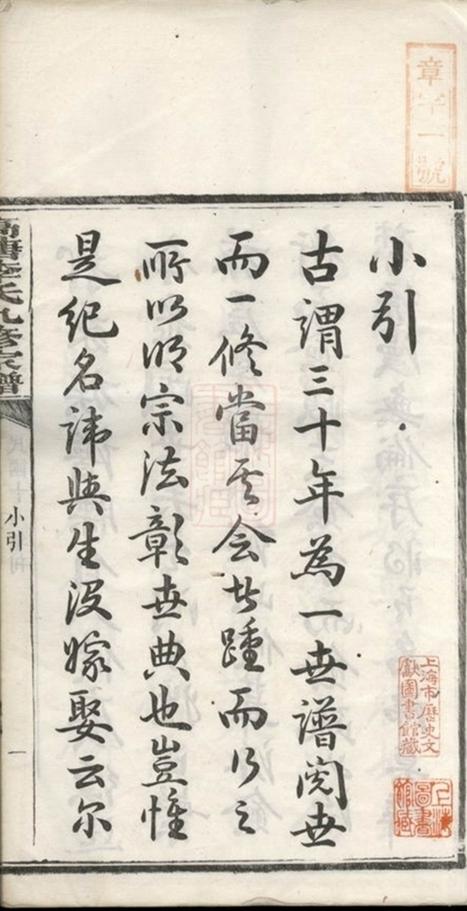 章字一號
小引
古謂三十年為一世譜閱世
而一修當其會者踵而行之
所以明宗法彰世典也豈惟
是紀名諱與生没嫁娶云尔
氏九修家譜
小引
一
上海市歷史文
獻圖書館藏
上海
圖書
館藏